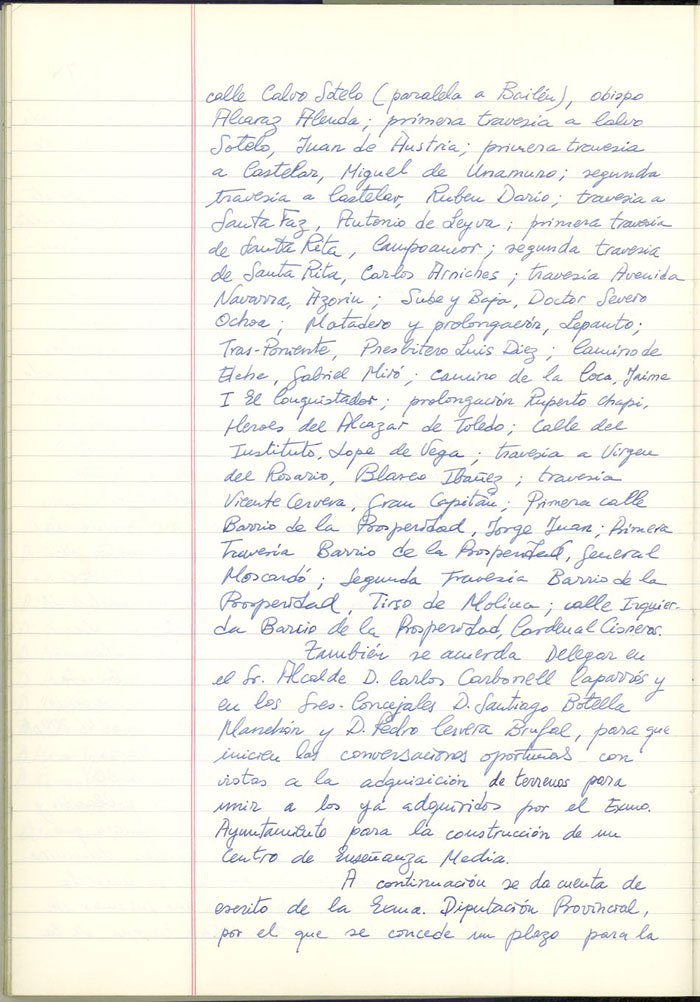 calle Calvo Sotelo (paralela a Bailén), obispo
Alcaraz Alenda; primera travesía a Calvo
Sotelo, Juan de Austria; primera travesía
a Castelar, Miguel de Unamuno; segunda
travesía a Castelar, Ruben Dario; travesía a
Santa Faz, Antonio de Leyva; primera travesía
de Santa Rita, Campoamor; segunda travesía
de Santa Rita, Carlos Arniches; travesía Avenida
Navarra, Azorin; Sube y Baja, Doctor Severo
Ochoa; Matadero y prolongación, Lepanto;
Tras-Poniente, Presbitero Luis Diez; Camino de
Elche, Gabriel Miró; Camino de la Coca, Jaime
I El Conquistador; prolongación Ruperto Chapi,
Heroes del Alcazar de Toledo; Calle del
Instituto, Lope de Vega; travesia a Virgen
del Rosario, Blasco Ibañez; travesia
Vicente Cervera, Gran Capitán; Primera calle
Barrio de la Prosperidad, Jorge Juan; Primera
Travesia Barrio de la Prosperidad, General
Moscardó; Segunda Travesia Barrio de la
Prosperidad, Tirso de Molina; calle Izquier-
da Barrio de la Prosperidad, Cardenal Cisneros.
También se acuerda Delegar en
el Sr. Alcalde D. Carlos Carbonell Caparrós y
en los Sres. Concejales D. Santiago Botella
Manchón y D. Pedro Cervera Brufal, para que
inicien las conversaciones oportunas con
vistas a la adquisición de terrenos para
unir a los ya adquiridos por el Excmo.
Ayuntamiento para la construcción de un
Centro de Enseñanza Media.
A continuación se da cuenta de
escrito de la Exma. Diputación Provincial,
por el que se concede un plazo para la